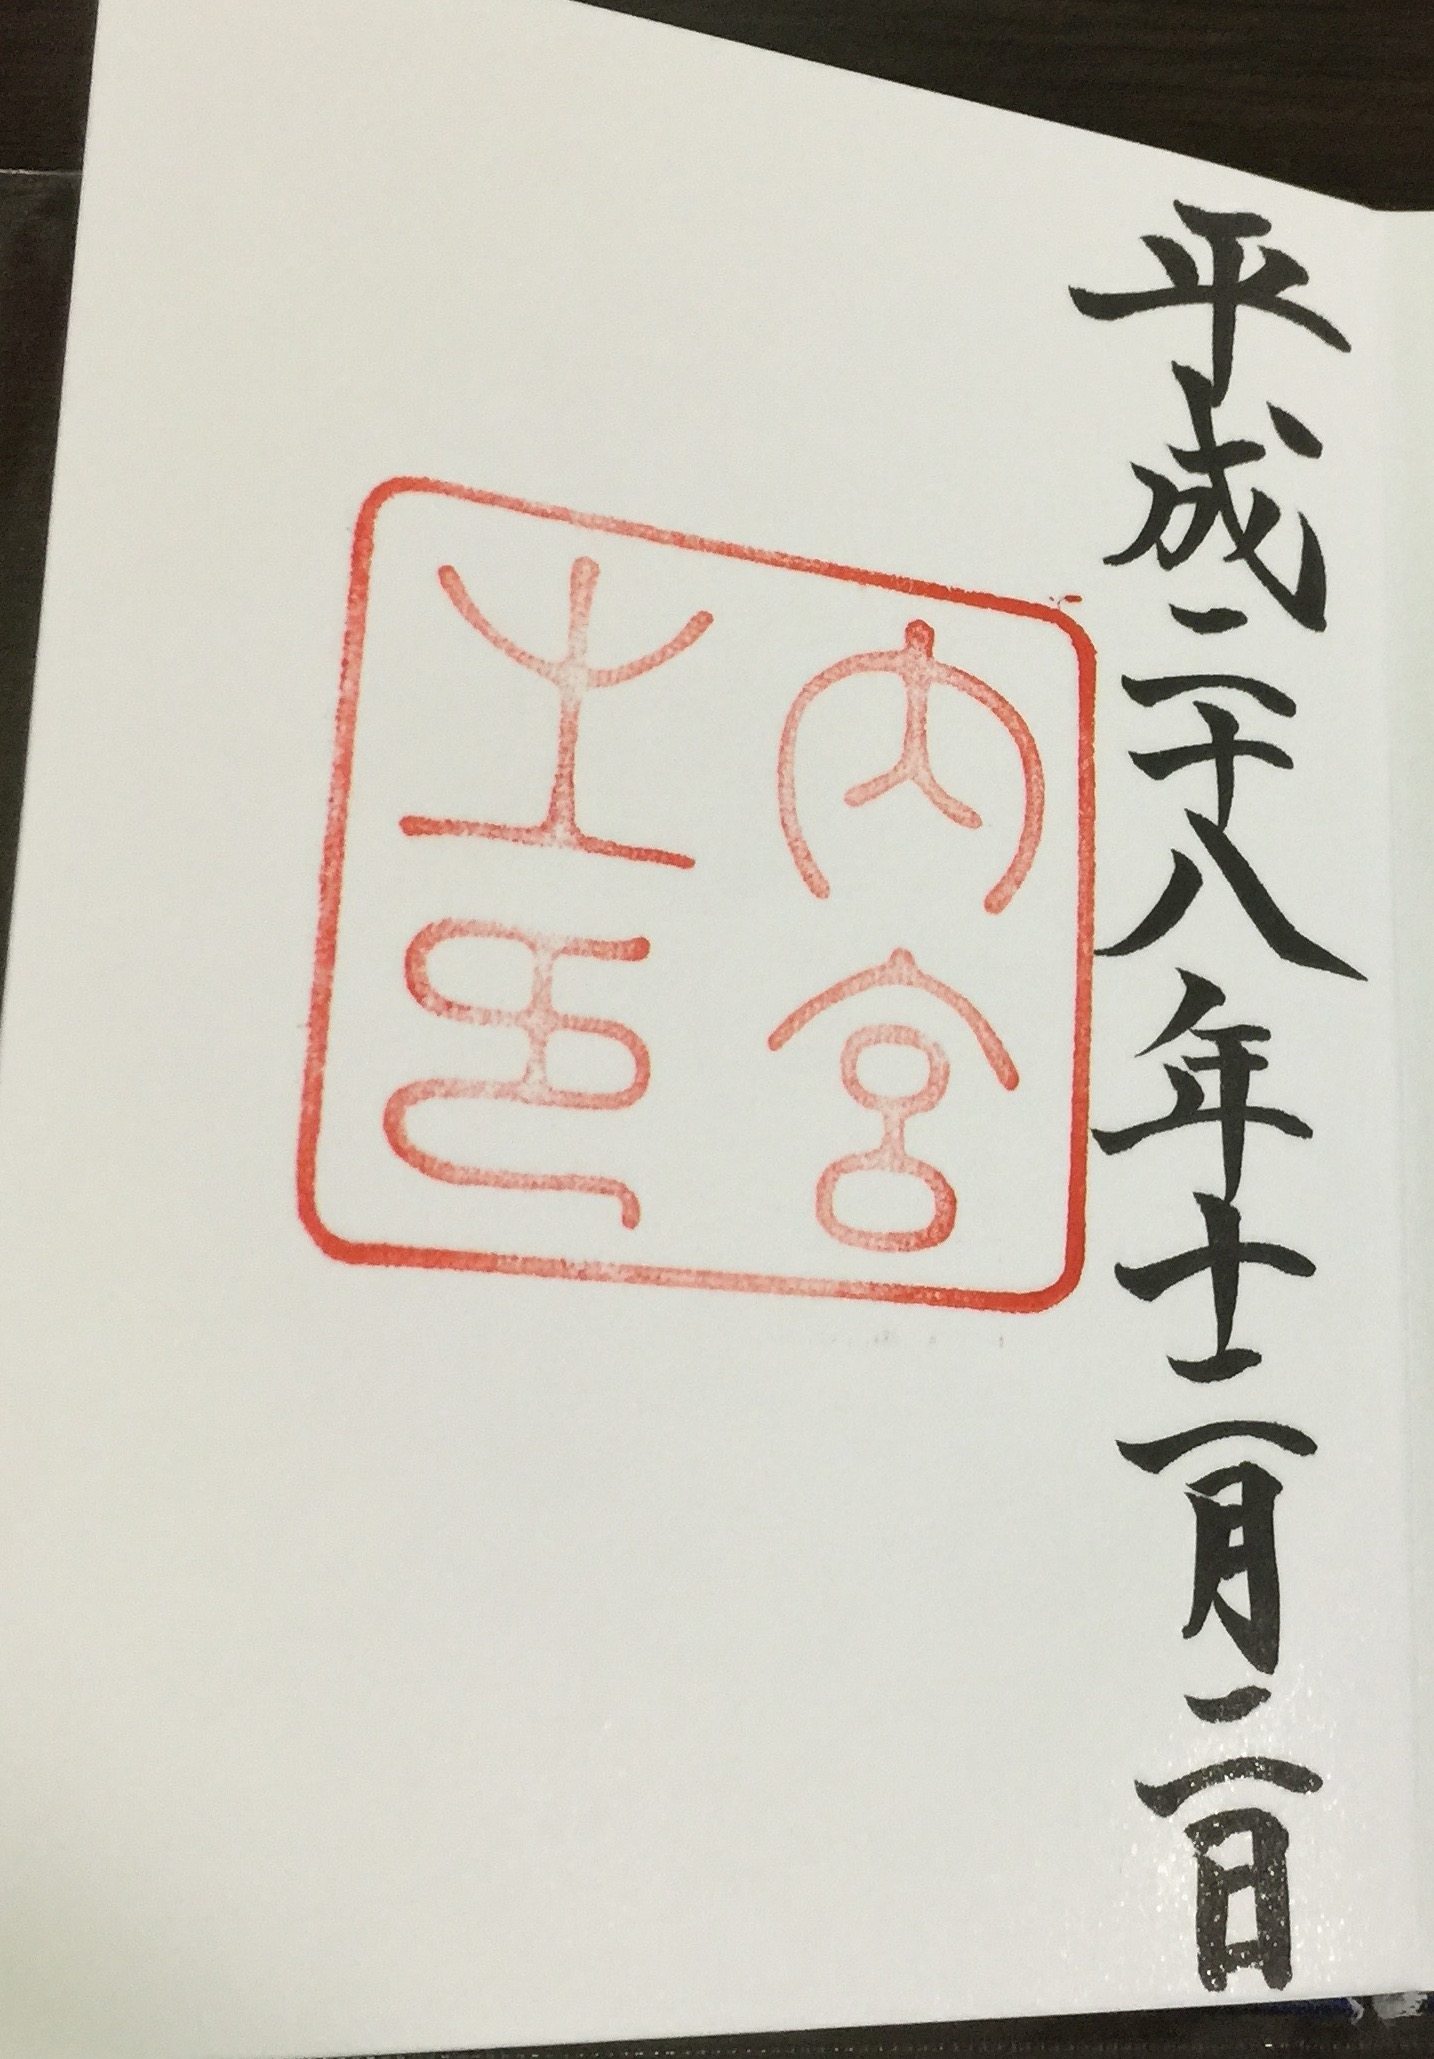 平成二十八年十二月二日
内宮
之印